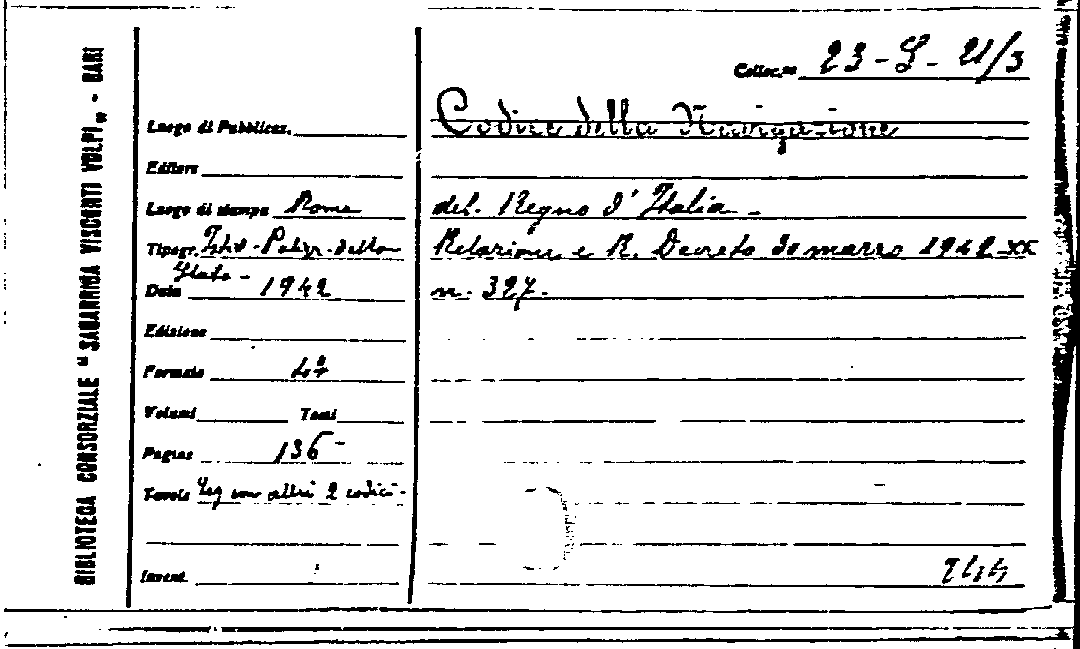 BIBLIOTECA CONSORZIALE "SAGARRIGA VISCONTI VOLPI" - BARI
Colloc.ne 23-G-21/3
Luogo di Pubblicaz.
Codice della Navigazione
Editore
Luogo di stampa Roma
del Regno d'Italia -
Tipogr. Ist. Poligr. dello Stato -
Relazione e R. Decreto 30 marzo 1942-XX
Data 1942
n. 327.
Edizione
Formato 4°
Volumi Tomi
Pagine 136 -
Tavole Leg con altri 2 codici -
Invent.